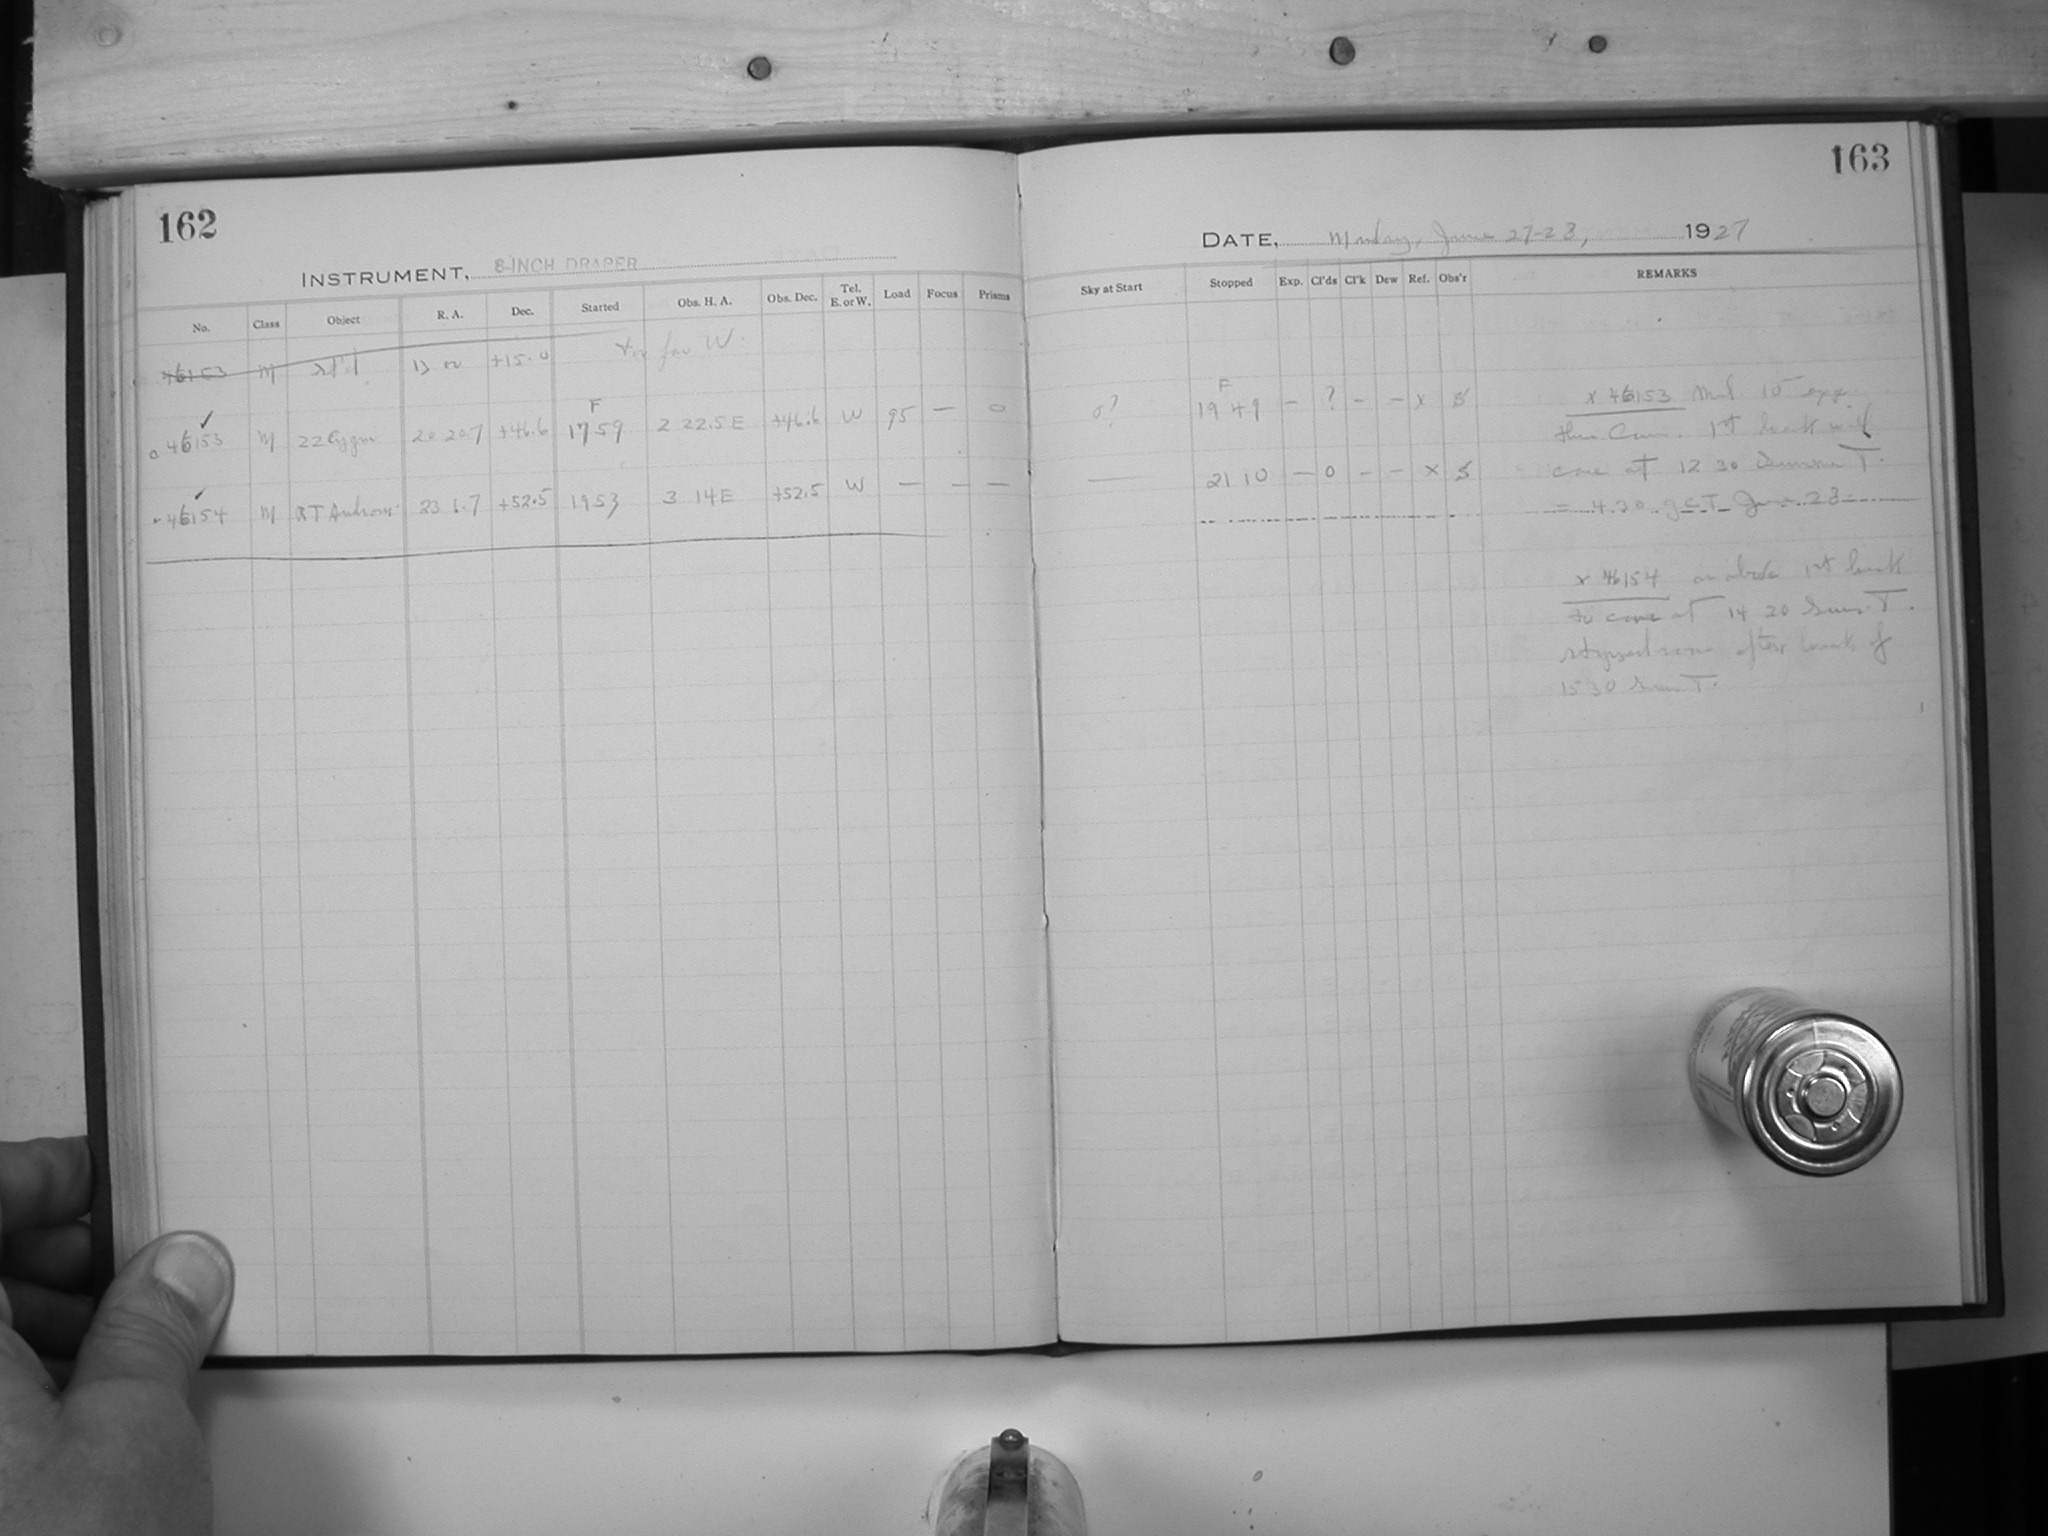 162
INSTRUMENT, 8-INCH DRAPER
No. Class Object R. A. Dec. Started Obs. H. A. Obs. Dec. Tel. E. or W. Load Focus Prisms
46153 M St'd 13 00 +15.0 Too far W.
46153 M 22 Cygni 20 20.7 +46.6 F 17 59 2 22.5 E +46.6 W 95 — 0
46154 M RT Androm 23 6.7 +52.5 19 53 3 14 E +52.5 W — — —
163
DATE, Monday, June 27-28, 1927
Sky at Start Stopped Exp. Cl'ds Cl'k Dew Ref. Obs'r REMARKS
0? F 19 49 — ? — — x S
— 21 10 — 0 — — x S
x 46153 10 exp.
1st break will
come at 12 30 Summer T.
= 4.30 G.C.T. June 28
x 46154 as above 1st break
to come at 14 20 Sum. T.
after break of
15 30 Sum. T.